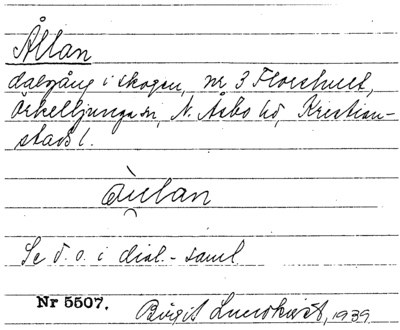 Ållan
dalgång i skogen, nr 3 Florshult,
Örkelljunga sn, N. Åsbo hd, Kristian-
stads l.
Se d. o. i dial.-saml
Nr 5507.
Birgit Lundkvist, 1939